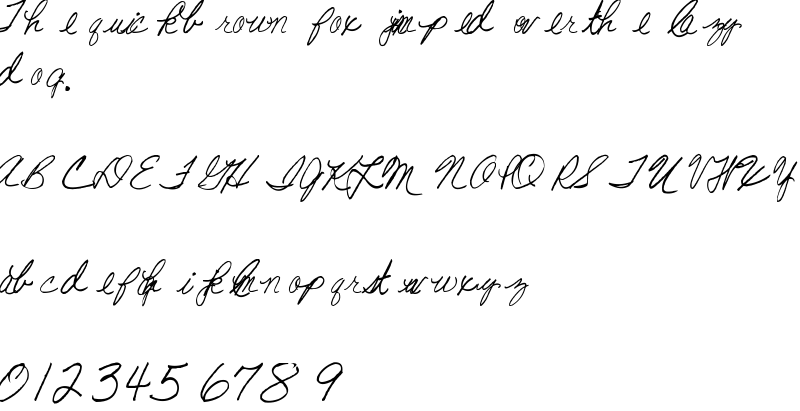 The quick brown fox jumped over the lazy
dog.
A B C D E F G H I J K L M N O P Q R S T U V W X Y
a b c d e f g h i j k l m n o p q r s t u v w x y z
0 1 2 3 4 5 6 7 8 9